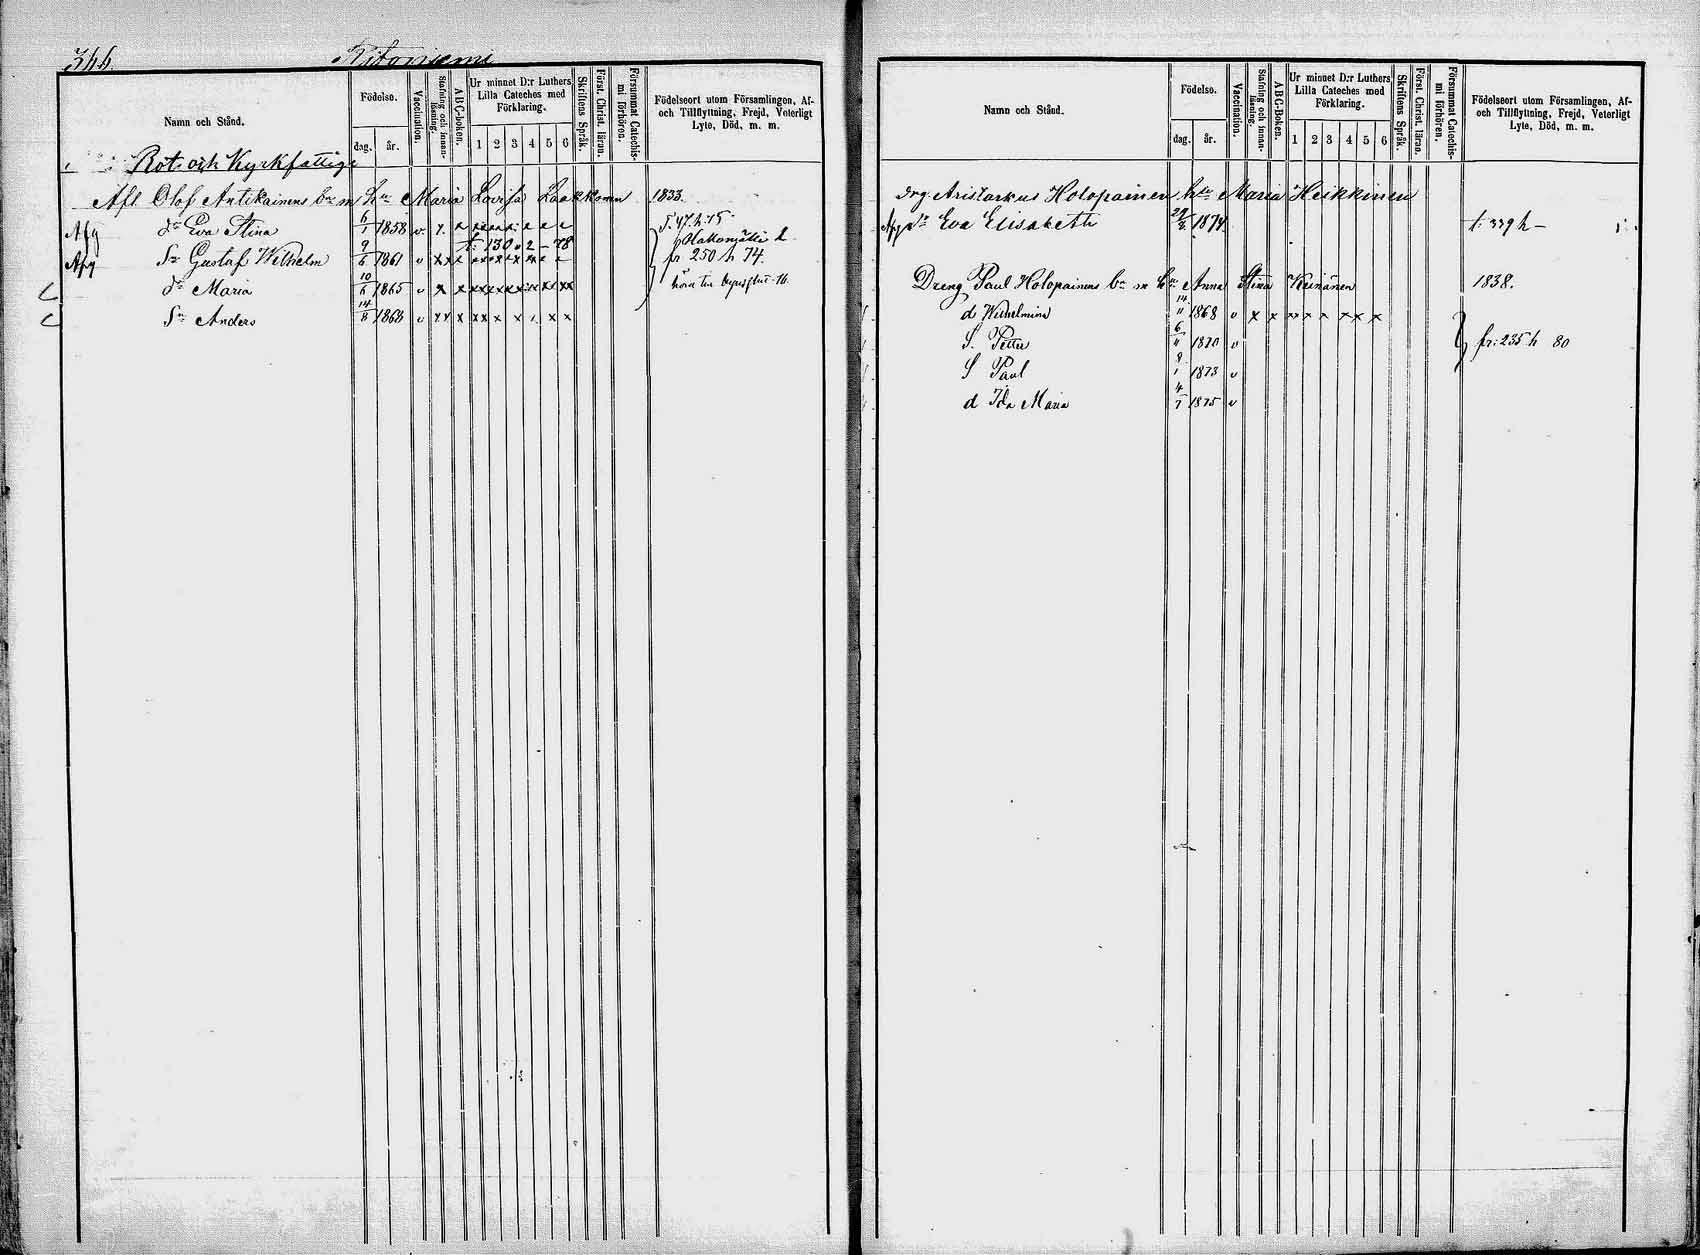 346. Ritoniemi
Namn och Stånd.
Födelse.
dag. år.
Vaccination.
Stafning och innanläsning.
A B C-boken.
Ur minnet D:r Luthers Lilla Cateches med Förklaring.
1 2 3 4 5 6
Skriftens Språk.
Först. Christ. läran.
Försummat Catechismi förhören.
Födelseort utom Församlingen, Af- och Tillflyttning, Frejd, Veterligt Lyte, Död, m. m.
Rot och Kyrkfattige
Afl. Olof Antikainens bn m Hu Maria Lovisa Laakkonen 1833.
Afg dr Eva Stina 6/1 1858 v. 5. 47. h. 75
t. 130 v 2 – 78
Afg Sn Gustaf Wilhelm 9/6 1861 v x x x fr 250 h 74.
dr Maria 10/6 1865 v x x x x x x x x x
Sn Anders 14/8 1868 v x x x x x x x x x
Namn och Stånd.
Födelse.
dag. år.
Vaccination.
Stafning och innanläsning.
A B C-Boken.
Ur minnet D:r Luthers Lilla Cateches med Förklaring.
1 2 3 4 5 6
Skriftens Språk.
Först. Christ. läran.
Försummat Catechismi förhören.
Födelseort utom Församlingen, Af- och Tillflyttning, Frejd, Veterligt Lyte, Död, m. m.
Drg. Aristarkus Holopainen hu Maria Heikkinen
Afg dr Eva Elisabeth 1874 t. 339 h –
Dreng Paul Holopainens bn m hu Anna Stina Keinänen 1838.
d Wilhelmina 14/11 1868 v x x x x x x x x x
S. Petter 6/11 1870 v fr: 235 h 80
S Paul 8/1 1873 v
d Ida Maria 4/7 1875 v